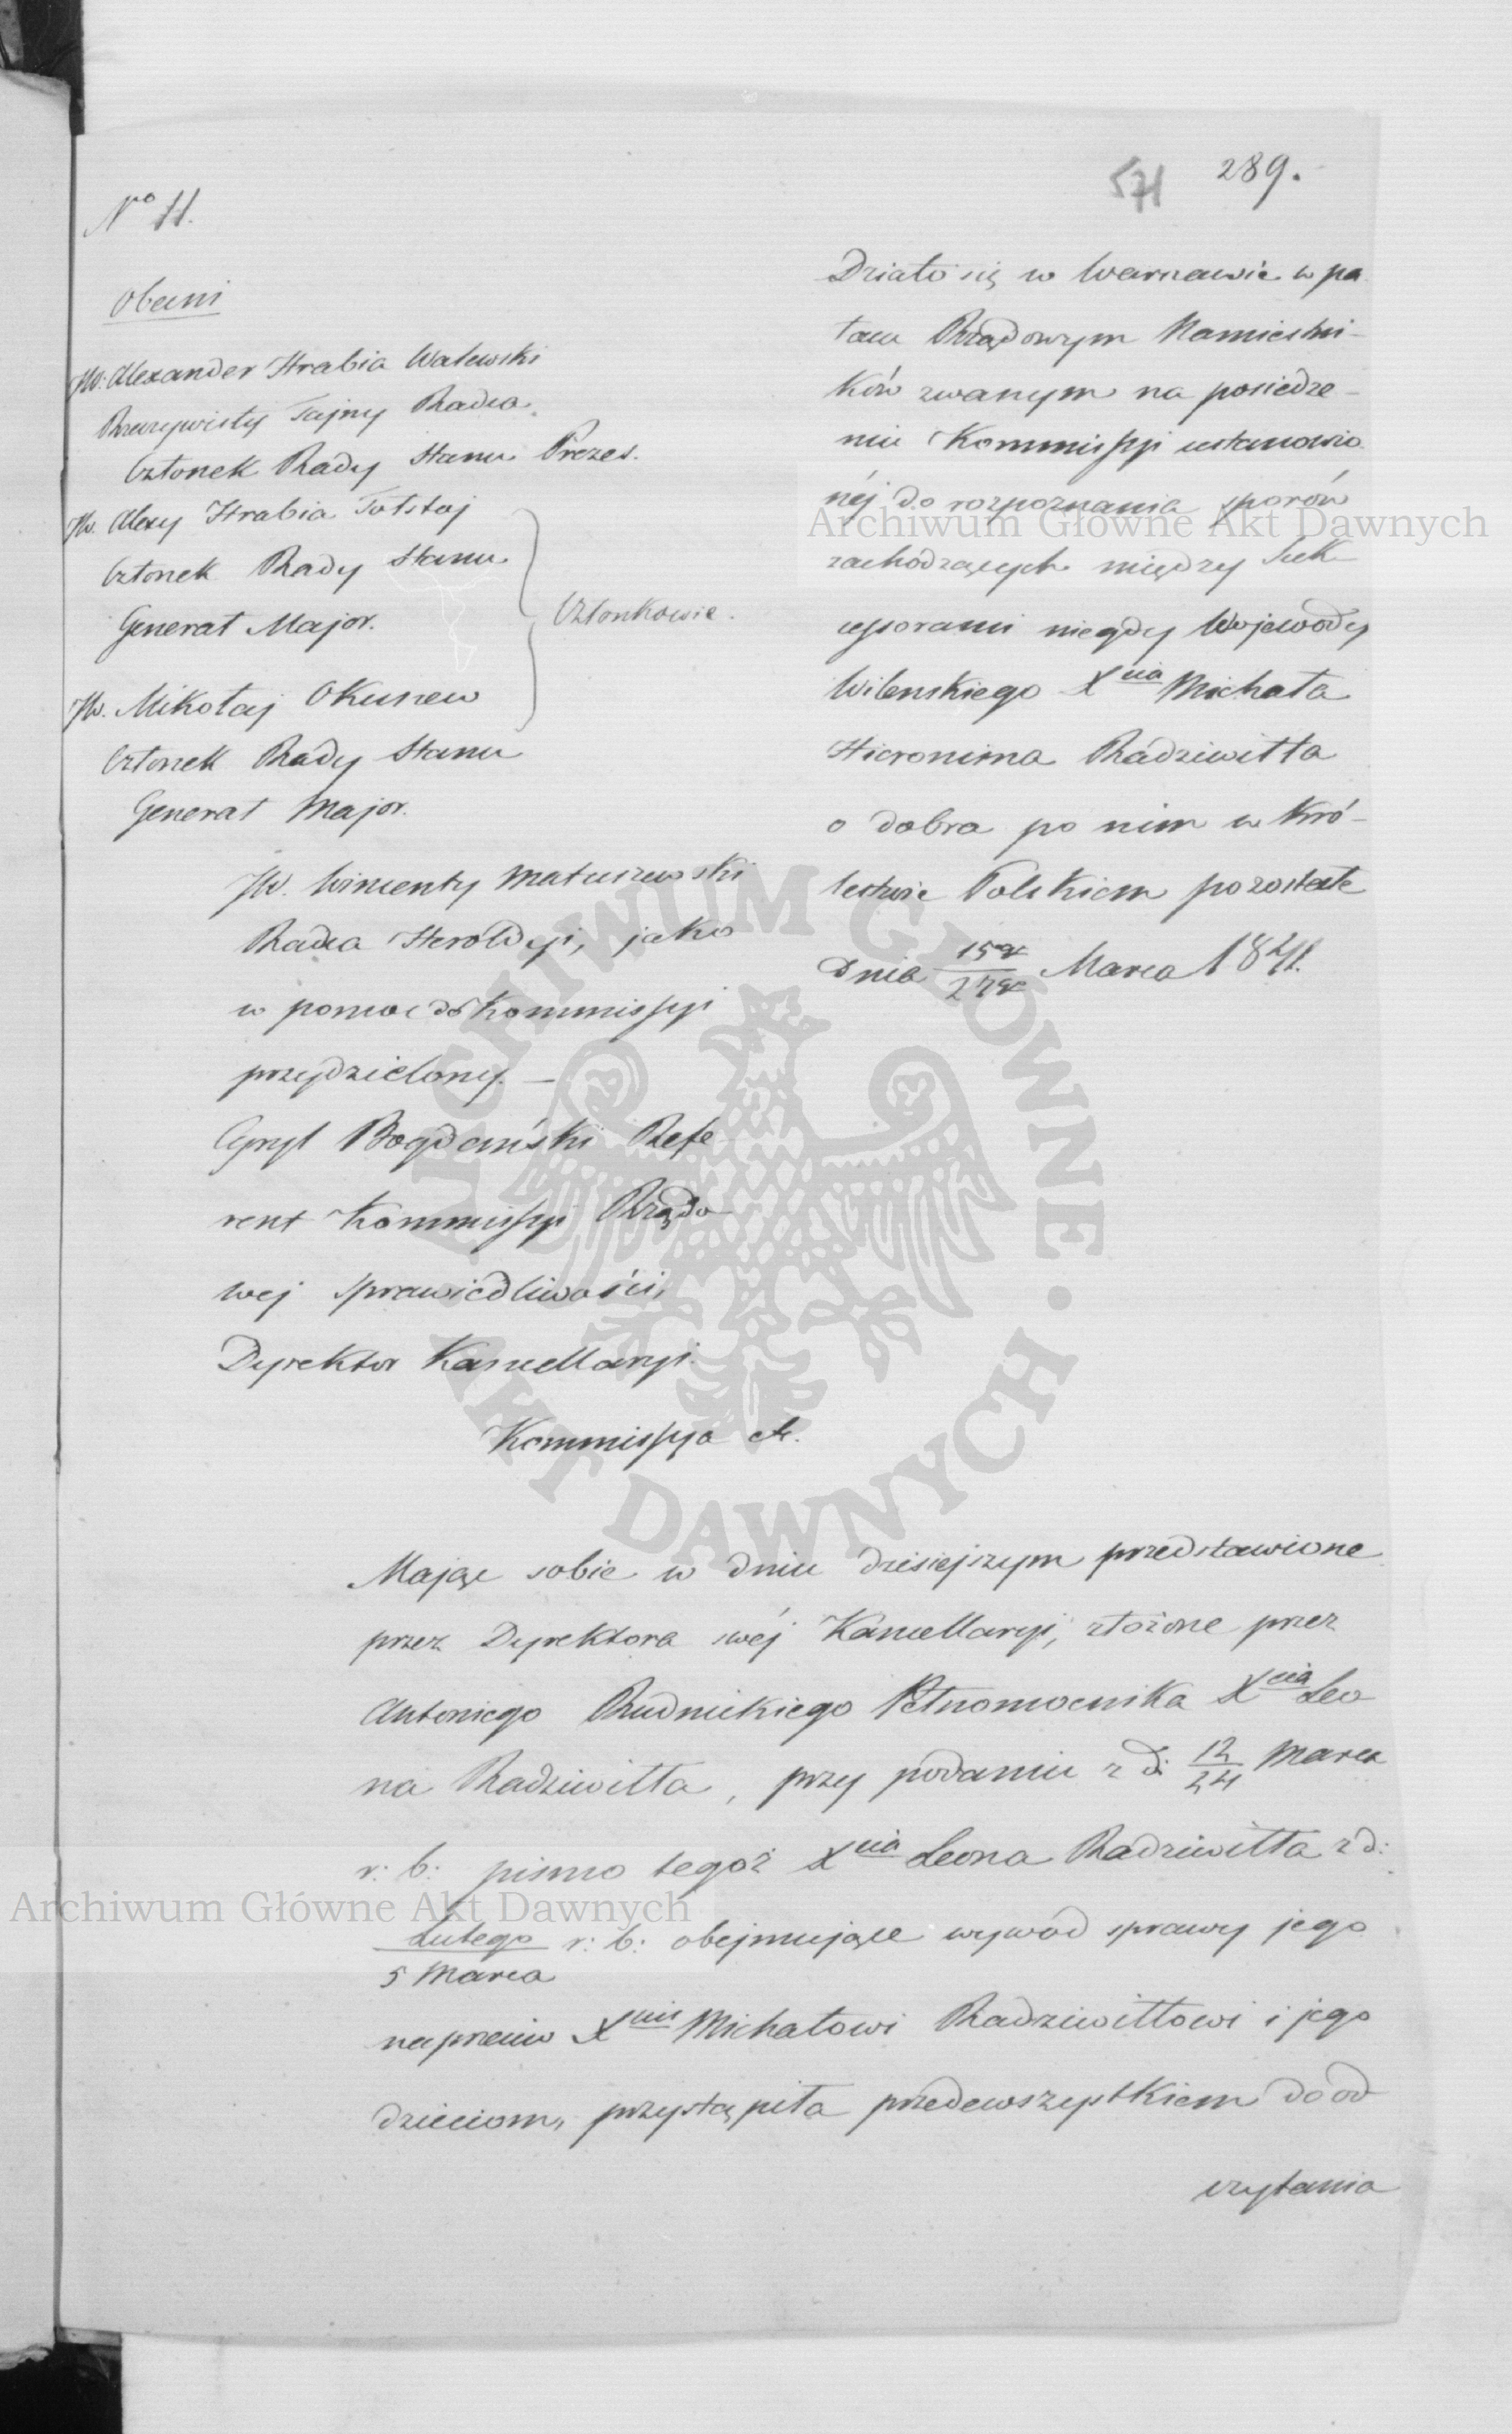 571 289.
No 11.
Obecni
JW. Alexander Hrabia Walewski
Rzeczywisty Tajny Radca
Członek Rady Stanu Prezes.
JW. Alexy Hrabia Tołstoj
Członek Rady Stanu
Generał Major.
Członkowie.
JW. Mikołaj Okunew
Członek Rady Stanu
Generał Major.
JW. Wincenty Matuszewski
Radca Heroldyi, jako
w pomoc do Kommissyi
przydzielony. —
Cyryl Bogdański Refe
rent Kommissyi Rządo
wej Sprawiedliwości,
Dyrektor Kancellaryi.
Działo się w Warszawie w pa
łacu Rządowym Namiestni-
ków zwanym na posiedze-
niu Kommissyi ustanowio
néj do rozpoznania sporów
zachodzących między Suk
cessorami niegdy Wojewody
Wileńskiego Xcia Michała
Hieronima Radziwiłła
o dobra po nim w Kró-
lestwie Polskiem pozostałe
Dnia 15go/27go Marca 1841.
Kommissya etc.
Mając sobie w dniu dzisiejszym przedstawione
przez Dyrektora swéj Kancellaryi, złożone przez
Antoniego Rudnickiego Pełnomocnika Xcia Leo
na Radziwiłła, przy podaniu z d: 12/24 Marca
r: b: pismo tegoż Xcia Leona Radziwiłła z d:
Lutego/5 Marca r: b: obejmujące wywód sprawy jego
naprzeciw Xciu Michałowi Radziwiłłowi i jego
dzieciom, przystąpiła przedewszystkiem do od
czytania
Archiwum Główne Akt Dawnych
Archiwum Główne Akt Dawnych
ARCHIWUM GŁÓWNE · AKT DAWNYCH ·